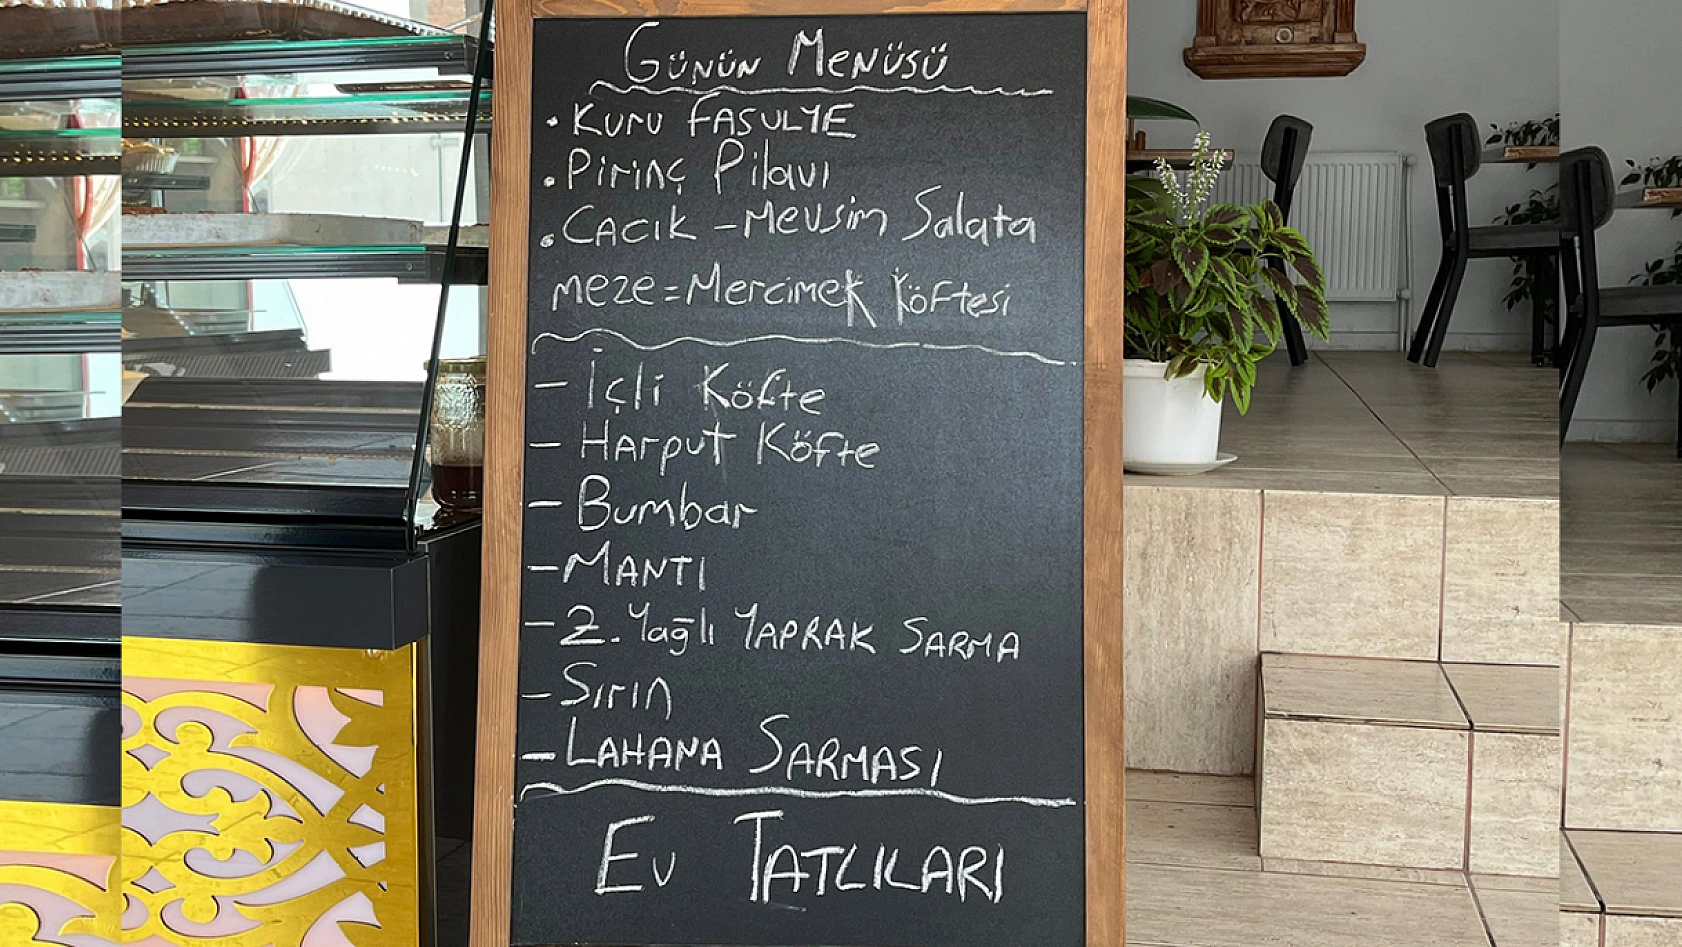 Günün Menüsü
• Kuru FASULYE
• Pirinç Pilavı
• CACIK - Mevsim Salata
meze = Mercimek Köftesi
- İçli Köfte
- Harput Köfte
- Bumbar
- MANTI
- Z. Yağlı YAPRAK SARMA
- Sırın
- LAHANA SARMASI
Ev TATLILARI